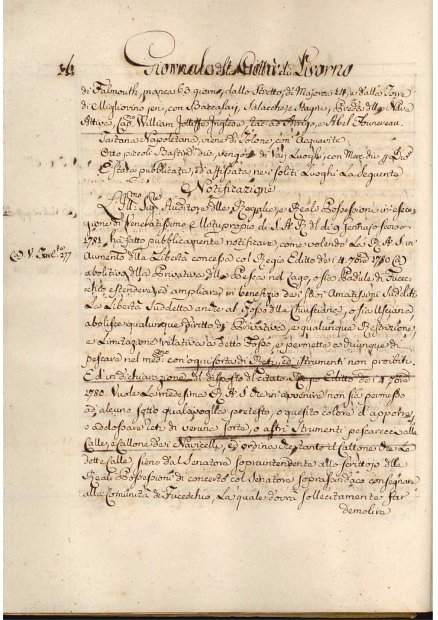 34
Giornale della Città di Livorno
di Falmouth, manca 63 giorni, dallo Stretto di Majorca 14, e dalla Torre
di Migliorino jeri, con Baccalari, Salacche, e Stagni, Preda della Nave
Attivo, Cap. William Jolliffe Inglese, rac. ad Arrigo, e Abel Fonnereau.
Tartana Napoletana, viene di Tolone, con Acquavite
Otto piccoli Bastim. che vengono di Varj Luoghi, con Merc. di Div.
È stata pubblicata, ed affissata nei soliti Luoghi la seguente
Notificazione
L'Ill.mo Sig. Auditore delle Regalie, e Reali Possessioni in esecu-
zione di Veneratissimo Motuproprio di S. A. R. del dì 9 Gennajo scorso
1781. ha fatto pubblicamente notificare, come volendo S. A. R. in
Aumento alla Libertà concessa col Regio Editto dei 14 7bre 1780
abolitiva della Privativa della Pesca nel Lago, o sia Padule di Fucec-
chio estendere, ed ampliare in benefizio dei suoi Amatissimi Sudditi
la Libertà Suddetta anche al Fosso della Chiusciana, o sia Usciana
abolisce qualunque diritto di Privativa, e qualunque Restrizione,
e Limitazione relativa a detto Fosso, e permette a chiunque di
pescare nel med.mo con ogni sorta di Reti, ed Strumenti non proibiti.
Ed in dichiarazione del disposto del citato Regio Editto dei 14 7bre
1780. Vuole la medesima R. A. S. che in avvenire non sia permesso
ad alcuno sotto qualsivoglia pretesto, o quesito colore d'apporre,
o addossare reti di veruna sorta, o altri Strumenti pescarecci alle
Calle, e Callone dei Navicelli, Ed ordina che tanto il Callone che le
dette Calle sieno dal Senatore Sopraintendente allo Scrittojo delle
Reali Possessioni di concerto col Senatore Soprassindaco consegnate
alla Comunità di Fucecchio, la quale dovrà sollecitamente far
demolire